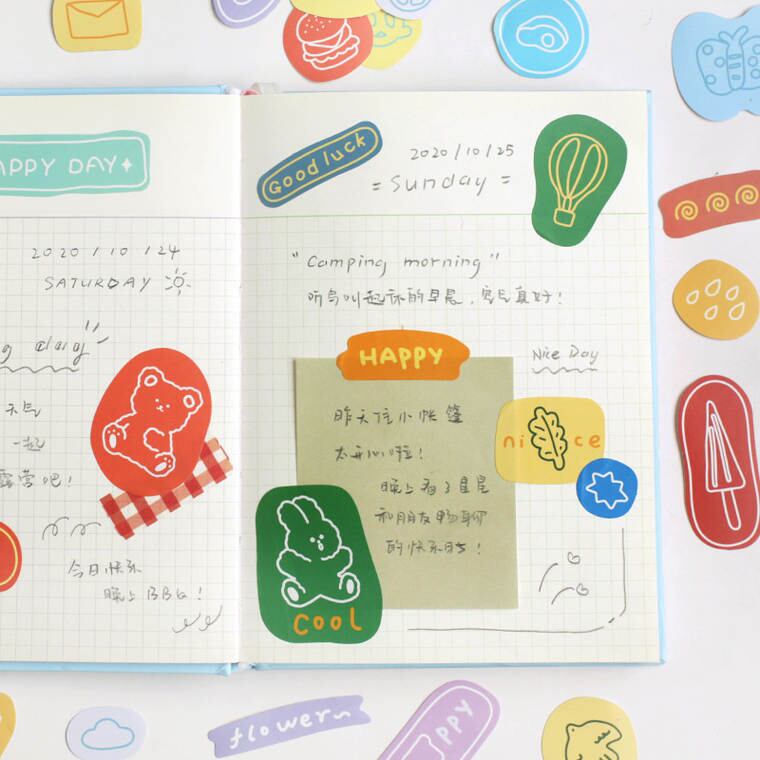 APPY DAY
2020/10/24
SATURDAY
g day"
天气
一起
露营吧!
今日快乐
晚上BBQ!
Good luck
2020/10/25
= Sunday =
"Camping morning"
听鸟叫起床的早晨,空气真好!
HAPPY
Nice Day
昨天住小帐篷
太开心啦!
晚上看了星星
和朋友畅聊
的快乐时光!
ni ce
COOL
flower
PPY